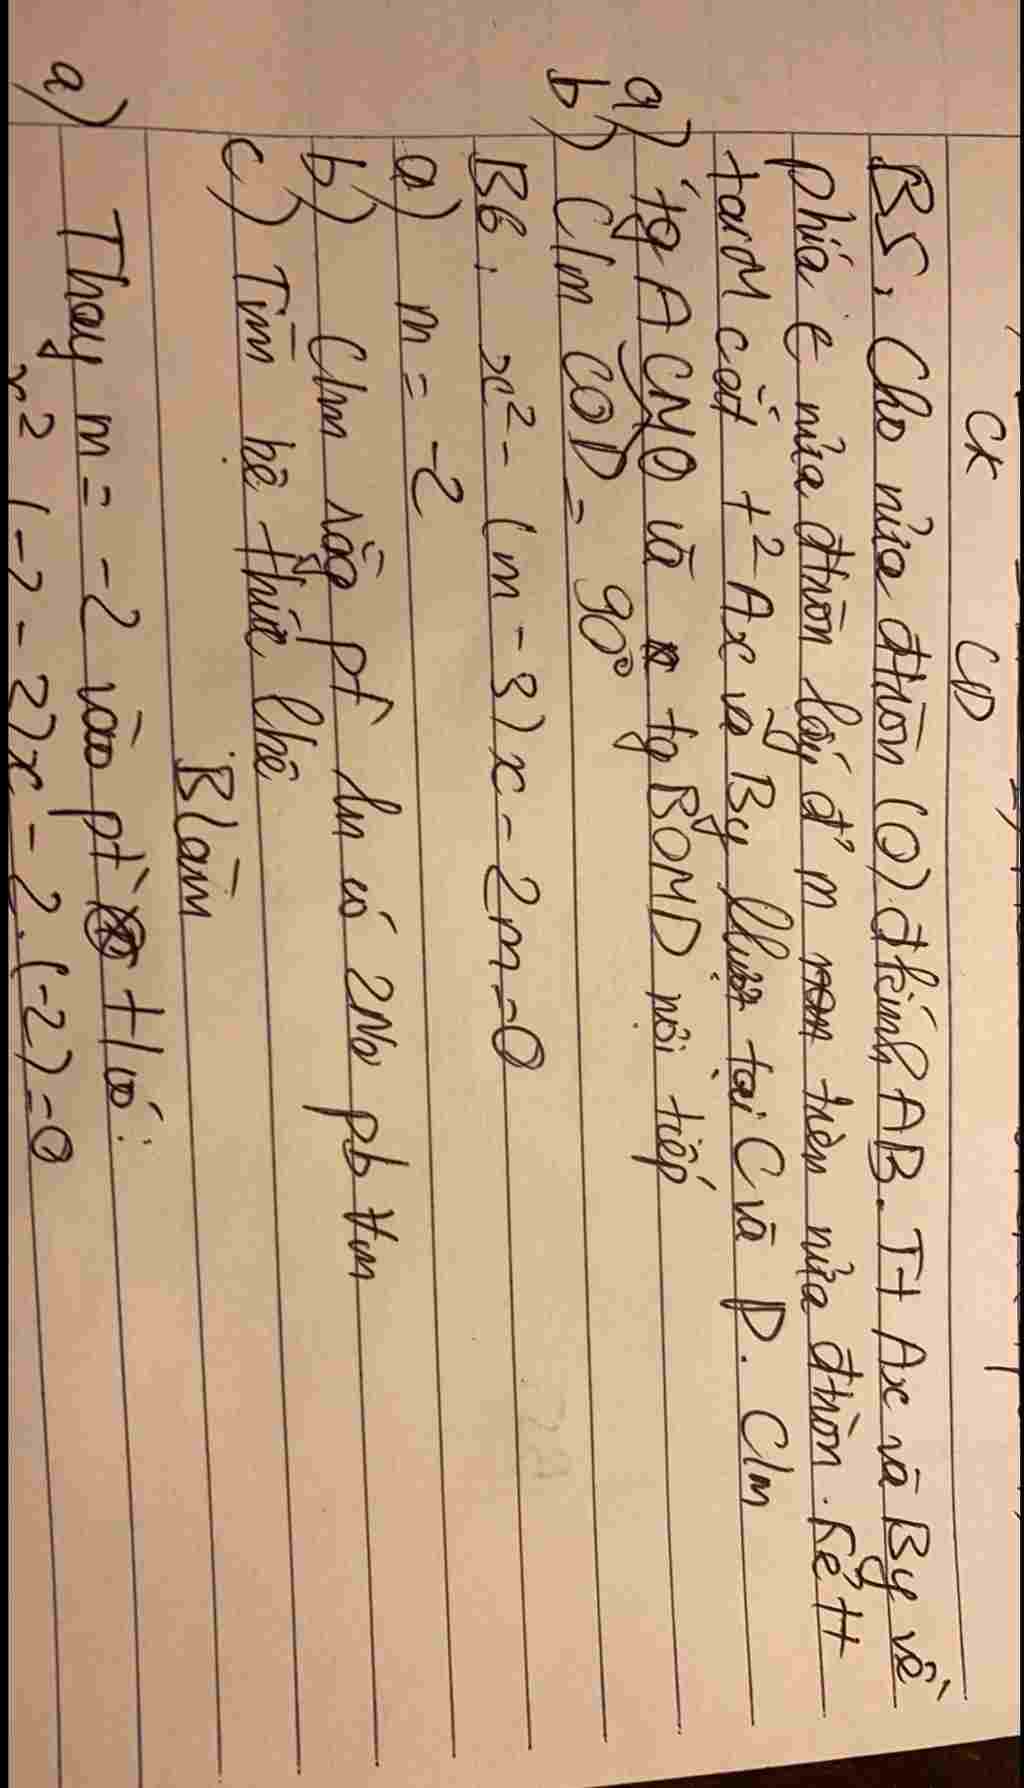 CK CD
B5, Cho nửa đtròn (O) đkính AB. T+ Ax và By về
phía € nửa đtròn lấy đ' m trên nửa đtròn. Kẻ t+
tại M cắt t+² Ax và By llượt tại C và D. C/m
a) tg ACMO và tg BOMD nội tiếp
b) C/m COD = 90°
B6, x² - (m - 3)x - 2m = 0
a) m = -2
b) C/m rằg pt luôn có 2No pb ∀m
c) Tìm hệ thức lhệ
Blàm
a) Thay m = -2 vào pt t/có:
x² (-2 - 2)x - 2.(-2) = 0